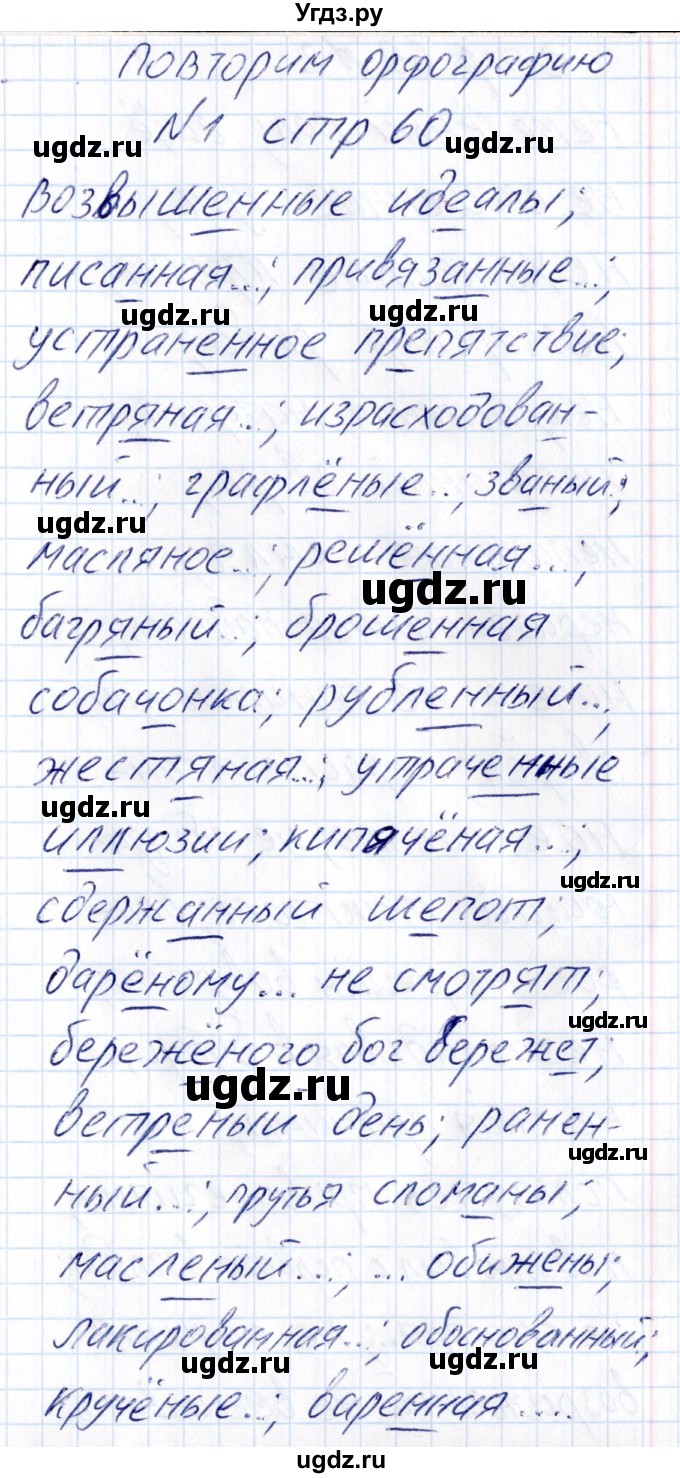 Угдз.ру
Повторим орфографию
№1 стр 60
ugdz.ru ugdz.ru
Возвышенные идеалы;
писанная...; привязанные...;
ugdz.ru ugdz.ru
устраненное препятствие;
ветряная...; израсходован-
ный...; графлёные...; званый...;
ugdz.ru
масляное...; решённая...;
ugdz.ru
багряный...; брошенная
собачонка; рубленный...;
жестяная...; утраченные
ugdz.ru
иллюзии; кипячёная...;
ugdz.ru
сдержанный шепот;
дарёному... не смотрят;
ugdz.ru
бережёного бог бережет;
ugdz.ru
ветреный день; ранен-
ugdz.ru
ный...; прутья сломаны;
масленый...; ... обижены;
лакированная...; обоснованный;
ugdz.ru ugdz.ru
кручёные...; варенная....
ugdz.ru